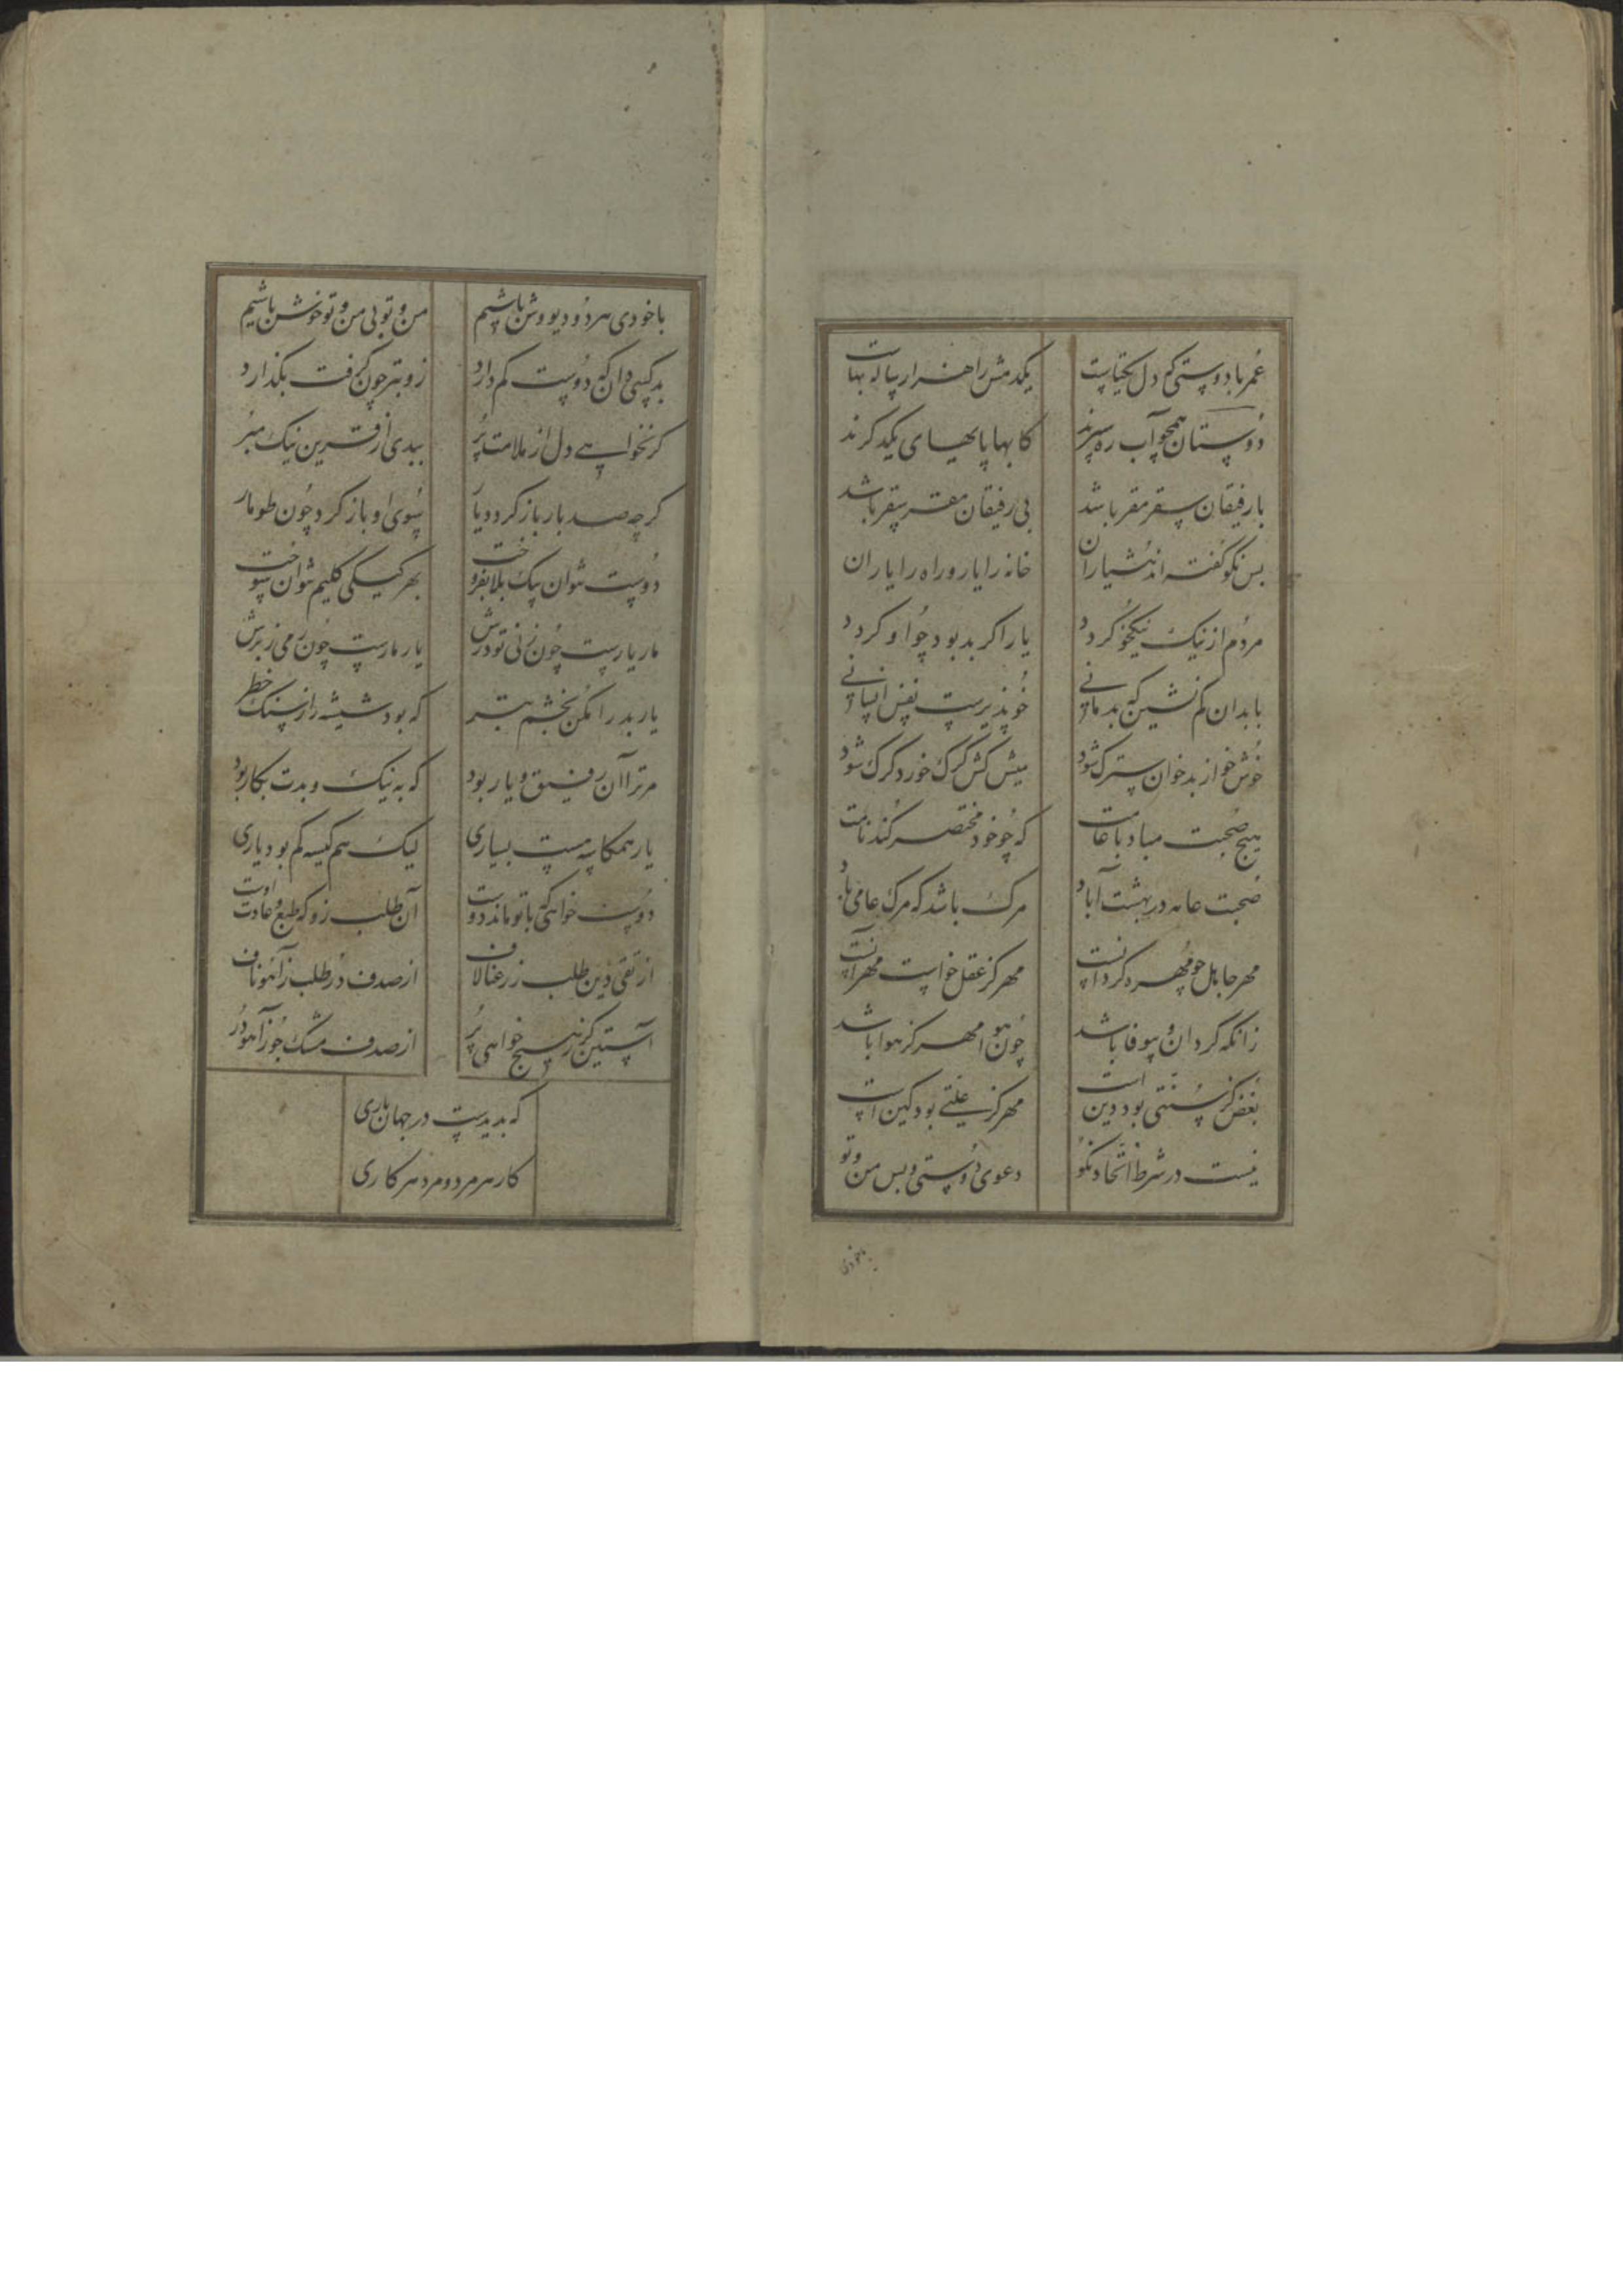 عمر با دوستی که دل یکتاست
یکدمش را هزار ساله بهاست
دوستان همچو آب ره سپرند
کابها پایهای یکدگرند
با رفیقان سفر مقر باشد
بی رفیقان مقر سقر باشد
بس نکو گفته‌اند هشیاران
خانه را یار و راه را یاران
مردم از نیک نیکخو گردد
یار اگر بد بود چو او گردد
با بدان کم نشین که بد مانی
خو پذیرست نفس انسانی
خوش خو از بدخوان سترک شود
میش کش گرگ خورد گرک شود
هیچ صحبت مباد با عامت
که چو خود مختصر کند نامت
صحبت عامه در بهشت آباد
مرک باشد که مرک عامی باد
مهر جاهل چو مهره گردانست
مهر کز عقل خواست مهر آنست
زانکه گردان و بیوفا باشد
چون هوا مهر کز هوا باشد
بغض کز سنتی بود دین است
مهر کز علتی بود کین است
نیست در شرط اتحاد نکو
دعوی دوستی و بس من و تو
باخودی
باخودی هر دو دیو وش باشیم
من و تو بی من و تو خوش باشیم
بد کسی دان که دوست کم دارد
زو بتر چون گرفت بگذارد
گر نخواهی دل از ملامت پر
ببدی از قرین نیک مبر
گر چه صد بار باز گردد یار
سوی او باز گرد چون طومار
دوست نتوان بیک بلا بفروخت
بهر کیکی گلیم نتوان سوخت
مار یارست چون زنی تو درش
یار مارست چون رمی ز برش
یار بد را مکن بخشم بتر
که بود شیشه را ز سنگ خطر
مر ترا آن رفیق و یار بود
که به نیک و بدت بکار بود
یار همکاسه هست بسیاری
لیک هم کیسه کم بود یاری
دوست خواهی که با تو ماند دوست
آن طلب زو که طبع و عادت اوست
از تقی دین طلب ز رعنا لاف
از صدف در طلب ز آهو ناف
آستین گر ز هیچ خواهی پر
از صدف مشک جوز آهو در
که بدیدست در جهان باری
کار هر مرد و مرد هر کاری